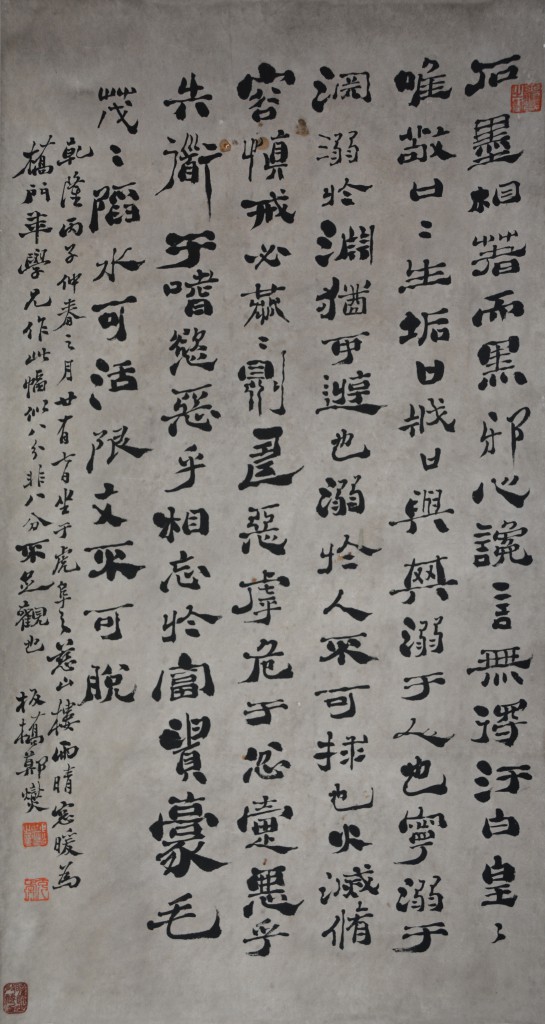 石墨相著而黑邪心讒言無得汙白皇〻
唯敬口〻生垢口戕口與其溺于人也寧溺于
淵溺於淵猶可遊也溺於人不可救也火滅脩
容慎戒必恭〻則壽惡虖危于忿疐惡乎
失道于嗜慾惡乎相忘於富貴豪毛
茂〻陷水可活限文不可脫
乾隆丙子仲春之月廿有日坐于虎阜之慈山樓雨晴窓暖為
橋門華學兄作此幅似八分非八分不足觀也 板橋鄭燮